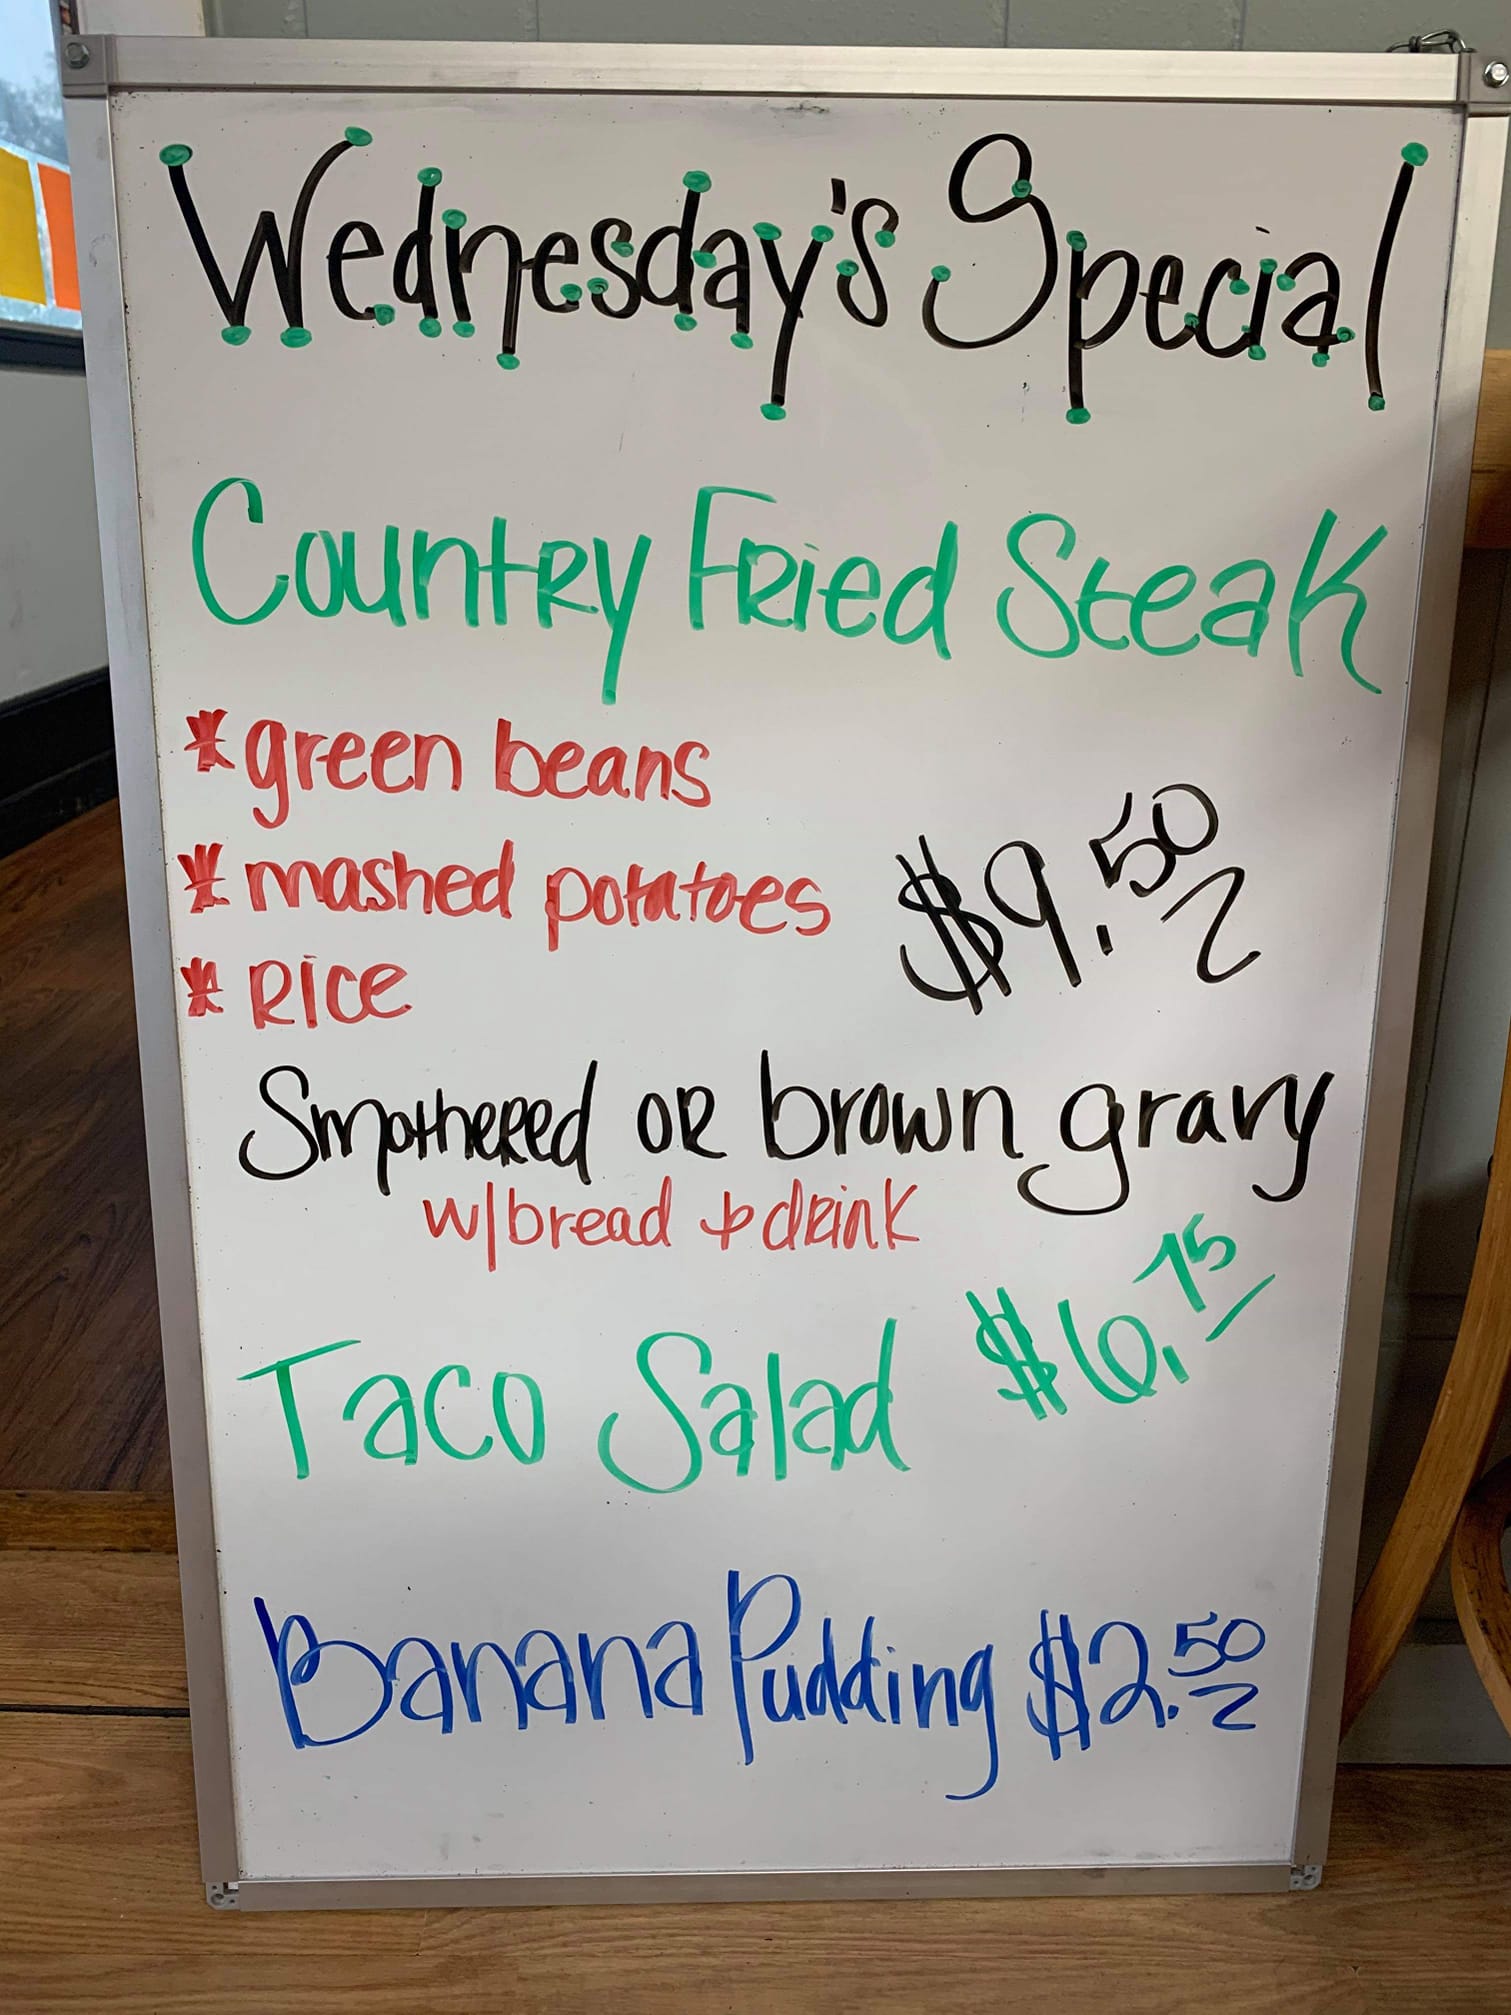 Wednesday's Special
Country Fried Steak
* green beans
* mashed potatoes
* Rice
$9.50
Smothered or brown gravy
w/bread & drink
Taco Salad $6.75
Banana Pudding $2.50